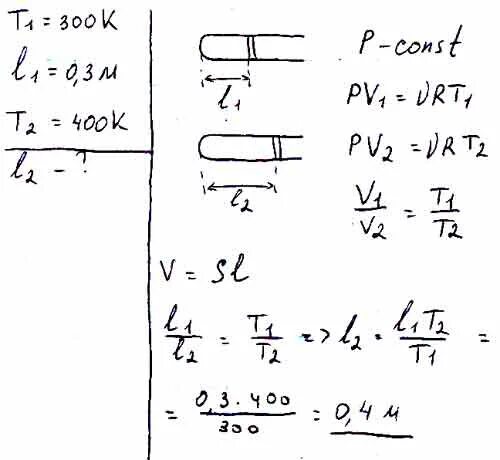 T₁ = 300K
l₁ = 0,3 м
T₂ = 400K
l₂ - ?
l₁
l₂
P - const
PV₁ = νRT₁
PV₂ = νRT₂
V₁/V₂ = T₁/T₂
V = Sl
l₁/l₂ = T₁/T₂ => l₂ = l₁T₂/T₁ =
= 0,3 · 400/300 = 0,4 м